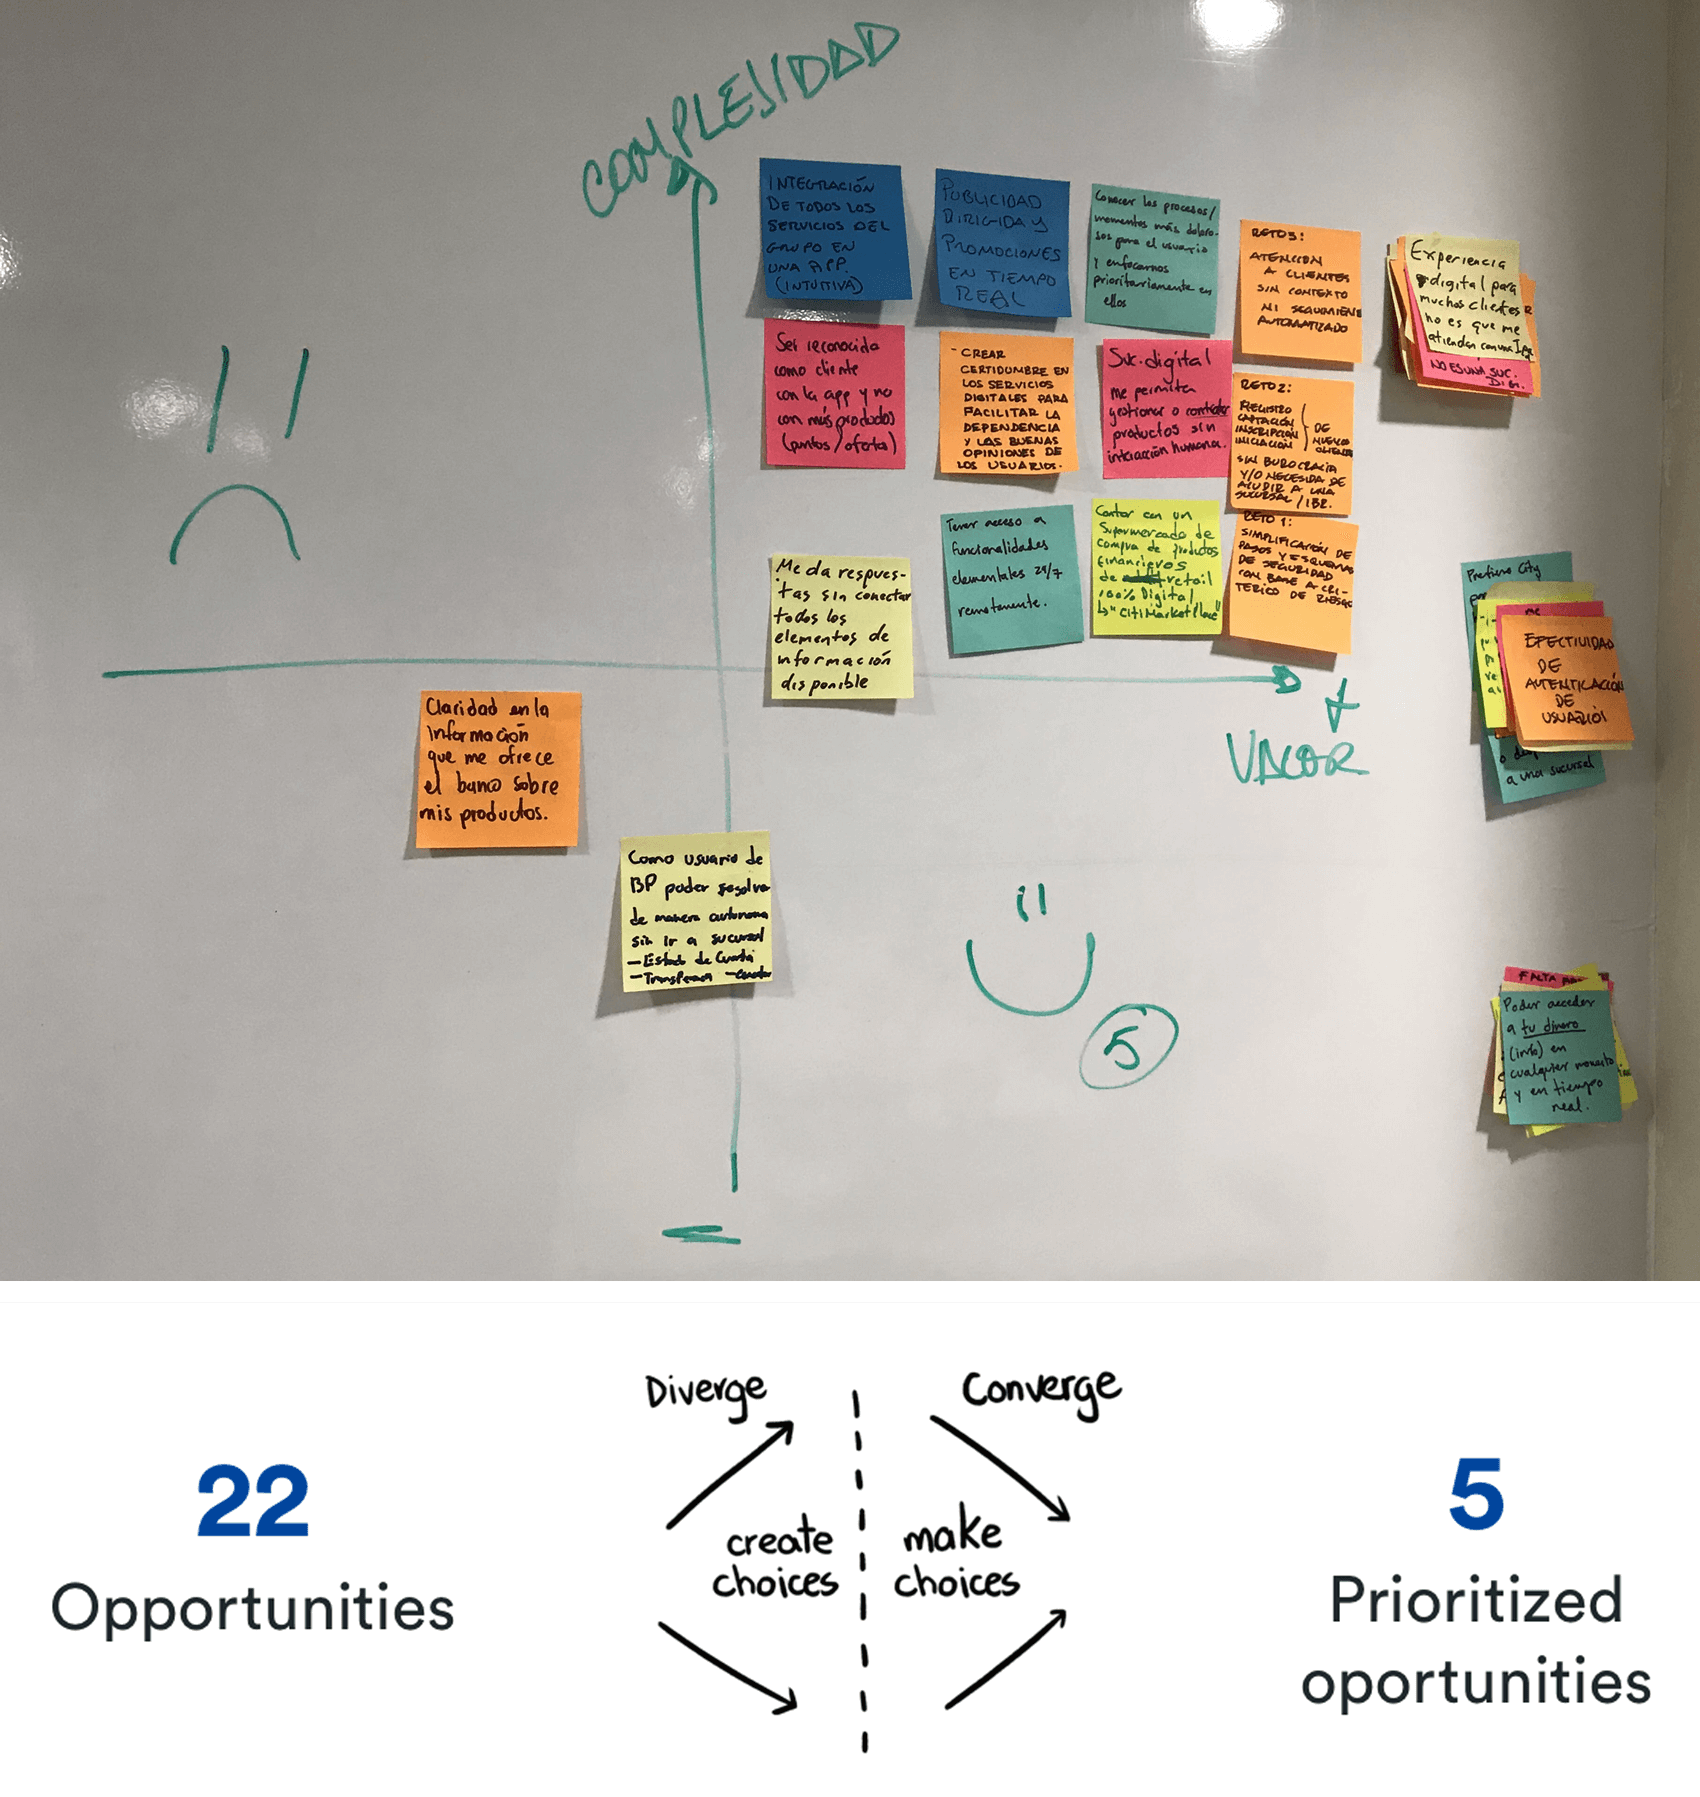 COMPLEJIDAD
INTEGRACIÓN
DE TODOS LOS
SERVICIOS DEL
GRUPO EN
UNA APP.
(INTUITIVA)
PUBLICIDAD
DIRIGIDA Y
PROMOCIONES
EN TIEMPO
REAL
Conocer los procesos/
momentos más doloro-
sos para el usuario
y enfocarnos
prioritariamente en
ellos
RETO 3:
ATENCION
A CLIENTES
SIN CONTEXTO
NI SEGUIMIENT
AUTOMATIZADO
Experiencia
digital para
muchos clientes
no es que me
atiendan con una Ipa
NO ES UNA SUC.
DIGI.
Ser reconocido
como cliente
con la app y no
con más productos
(puntos/ofertas)
- CREAR
CERTIDUMBRE EN
LOS SERVICIOS
DIGITALES PARA
FACILITAR LA
DEPENDENCIA
Y LAS BUENAS
OPINIONES DE
LOS USUARIOS.
Suc. digital
me permita
gestionar o contratar
productos sin
interacción humana.
RETO 2:
REGISTRO
CAPTACIÓN
INSCRIPCIÓN
INICIACIÓN
DE
NUEVOS
CLIENTES
SIN BUROCRACIA
Y/O NECESIDA DE
ACUDIR A UNA
SUCURSAL / IBR.
Me da respues-
tas sin conectar
todos los
elementos de
información
disponible
Tener acceso a
funcionalidades
elementales 24/7
remotamente.
Contar con un
Supermercado de
compra de productos
financieros
de retail
100% Digital
↳ "CitiMarketPlace"
RETO 1:
SIMPLIFICACIÓN DE
PASOS Y ESQUEMAS
DE SEGURIDAD
CON BASE A CRI-
TERICO DE RIESGO
Prefiero City
ME
EFECTIVIDAD
DE
AUTENTICACIÓN
DE
USUARIOS
a una sucursal
+
VALOR
Claridad en la
información
que me ofrece
el banco sobre
mis productos.
Como usuario de
BP poder resolver
de manera autonoma
sin ir a sucursal
- Estado de Cuenta
5
FALTA
Poder acceder
a tu dinero
(info) en
cualquier momento
y en tiempo
real.
Diverge
Converge
22
Opportunities
create
choices
make
choices
5
Prioritized
oportunities